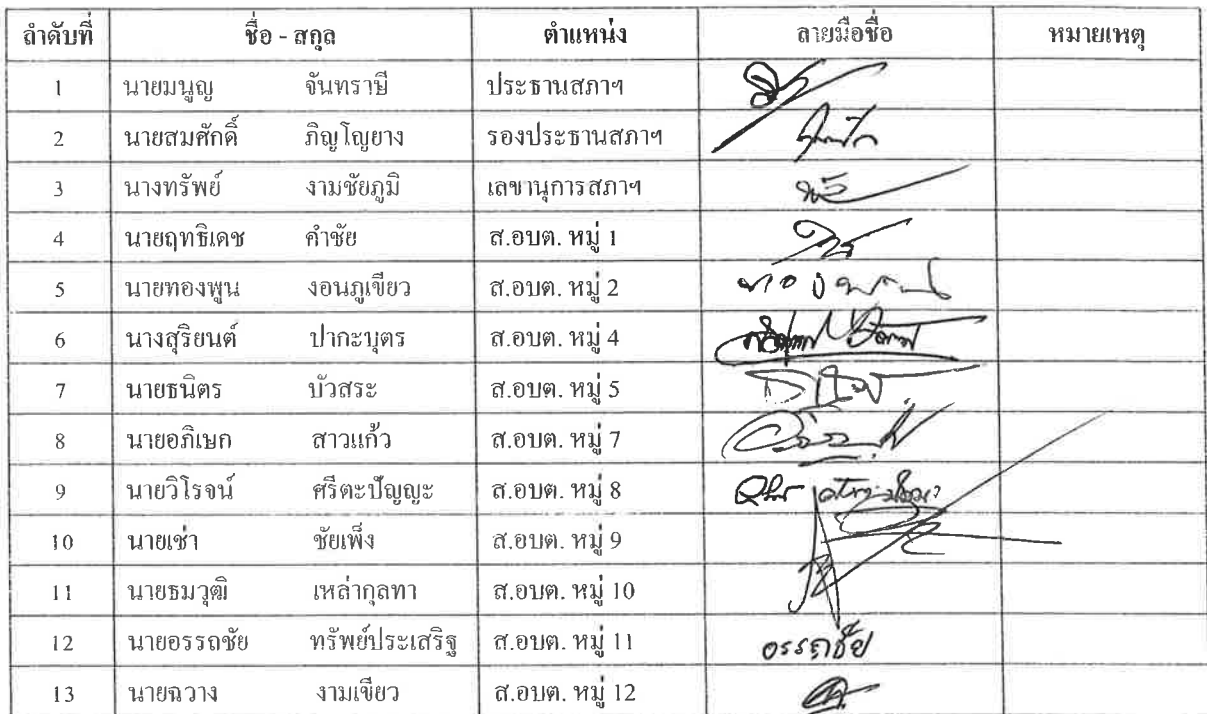 ลำดับที่ ชื่อ - สกุล ตำแหน่ง ลายมือชื่อ หมายเหตุ
1 นายมนูญ จันทราษี ประธานสภาฯ
2 นายสมศักดิ์ ภิญโญยาง รองประธานสภาฯ
3 นางทรัพย์ งามชัยภูมิ เลขานุการสภาฯ
4 นายฤทธิเดช คำชัย ส.อบต. หมู่ 1
5 นายทองพูน งอนภูเขียว ส.อบต. หมู่ 2
6 นางสุริยนต์ ปากะบุตร ส.อบต. หมู่ 4
7 นายธนิตร บัวสระ ส.อบต. หมู่ 5
8 นายอภิเษก สาวแก้ว ส.อบต. หมู่ 7
9 นายวิโรจน์ ศรีตะปัญญะ ส.อบต. หมู่ 8
10 นายเช่า ชัยเพ็ง ส.อบต. หมู่ 9
11 นายธมวุฒิ เหล่ากุลทา ส.อบต. หมู่ 10
12 นายอรรถชัย ทรัพย์ประเสริฐ ส.อบต. หมู่ 11 อรรถชัย
13 นายฉวาง งามเขียว ส.อบต. หมู่ 12